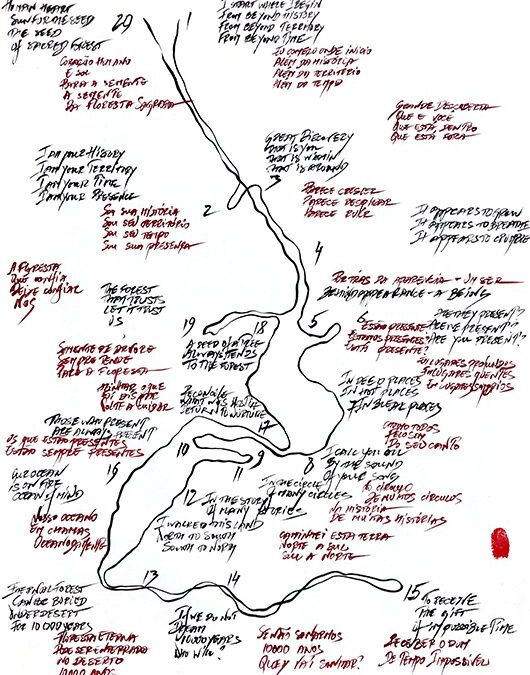 TO MAN HEART
SUN FOR THE SEED
THE SEED
of SACRED FOREST
20
CORAÇÃO HUMANO
E SOL
PARA A SEMENTE
A SEMENTE
DA FLORESTA SAGRADA
1
I START WHERE I BEGIN
FROM BEYOND HISTORY
FROM BEYOND TERRITORY
FROM BEYOND TIME
EU COMEÇO ONDE INICIO
ALÉM DA HISTÓRIA
ALÉM DO TERRITÓRIO
ALÉM DO TEMPO
I AM YOUR HISTORY
I AM YOUR TERRITORY
I AM YOUR TIME
I AM YOUR PRESENCE
SOU SUA HISTÓRIA
SOU SEU TERRITÓRIO
SOU SEU TEMPO
SOU SUA PRESENÇA
2
GREAT DISCOVERY
THAT IS YOU
THAT IS WITHIN
THAT IS AROUND
3
GRANDE DESCOBERTA
QUE É VOCÊ
QUE ESTÁ DENTRO
QUE ESTÁ FORA
PARECE CRESCER
PARECE RESPIRAR
PARECE RUIR
4
IT APPEARS TO GROW
IT APPEARS TO BREATHE
IT APPEARS TO CRUMBLE
POR TRÁS DA APARÊNCIA - UM SER
BEHIND APPEARANCE - A BEING
5
6
ARE THEY PRESENT?
ARE WE PRESENT?
ARE YOU PRESENT?
ESTÃO PRESENTES
ESTAMOS PRESENTES
ESTÁ PRESENTE?
A FLORESTA
QUE CONFIA
DEIXE CONFIAR
NÓS
THE FOREST
THAT TRUSTS
LET IT TRUST
US
19
18
SEMENTE DE ÁRVORE
SEMPRE TENDE
PARA A FLORESTA
A SEED OF A TREE
ALWAYS TENDS
TO THE FOREST
VOLTE A CUIDAR
RECONCILE
WHAT WAS HOSTILE
RETURN TO NURTURE
17
EM LUGARES PROFUNDOS
EM LUGARES QUENTES
EM LUGARES SOMBRIOS
IN DEEP PLACES
IN HOT PLACES
IN BLEAK PLACES
THOSE WHO PRESENT
ARE ALWAYS PRESENT
OS QUE ESTÃO PRESENTES
ESTÃO SEMPRE PRESENTES
16
OUR OCEAN
IS ON FIRE
OCEAN of MIND
NOSSO OCEANO
EM CHAMAS
OCEANO DA MENTE
10
9
8
I CALL YOU ALL
BY THE SOUND
OF YOUR SONG
CHAMO TODOS
PELO SOM
DO SEU CANTO
11
IN THE CIRCLE
OF MANY CIRCLES
12
IN THE STORY
OF MANY STORIES
NO CÍRCULO
DE MUITOS CÍRCULOS
NA HISTÓRIA
DE MUITAS HISTÓRIAS
I WALKED THIS LAND
NORTH TO SOUTH
SOUTH TO NORTH
CAMINHEI ESTA TERRA
NORTE A SUL
SUL A NORTE
13
14
15
CAN BE BURIED
UNDER DESERT
FOR 10 000 YEARS
FLORESTA ETERNA
PODE SER ENTERRADO
NO DESERTO
10000 ANOS
IF WE DO NOT
DREAM
10000 YEARS
WHO WILL?
SE NÃO SONHARMOS
10000 ANOS
QUEM VAI SONHAR?
TO RECEIVE
THE GIFT
of IMPOSSIBLE TIME
RECEBER O DOM
DE TEMPO IMPOSSÍVEL